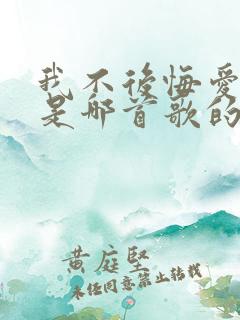 我不後悔愛
是哪首歌的
黄庭堅
未經同意禁止轉載